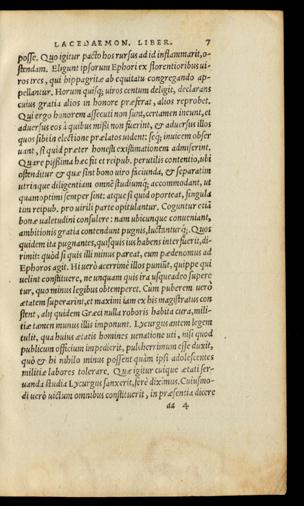 LACEDAEMON. LIBER. 7
posse. Quo igitur pacto hos rursus ad id inflammarit, o-
stendam. Eligunt ipsorum Ephori ex florentioribus ui-
ros tres, qui hippagritæ ab equitatu congregando ap-
pellantur. Horum quisq; uiros centum deligit, declarans
cuius gratia alios in honore præferat, alios reprobet.
Qui ergo honorem assecuti non sunt, certamen ineunt, et
aduersus eos à quibus missi non fuerint, & aduersus illos
quos sibi in electione prælatos uident: seq; inuicem obser
uant, si quid præter honesti existimationem admiserint.
Quare pijssima hæc fit et reipub. perutilis contentio, ubi
ostenditur & quæ sint bono uiro faciunda, & separatim
utrinque diligentiam omnẽ studiumq; accommodant, ut
quam optimi semper sint: atque si quid oporteat, singula
tim reipub. pro uirili parte opitulantur. Coguntur etiã
bonæ ualetudini consulere: nam ubicunque conueniant,
ambitionis gratia contendunt pugnis, luctanturq;. Quos
quidem ita pugnantes, quisquis ius habens interfuerit, di-
rimit: quòd si quis illi minus pareat, eum pædonomus ad
Ephoros agit. Hi uerò acerrimè illos puniũt, quippe qui
uelint constituere, ne unquam quis ira usqueadeo supere
tur, quo minus legibus obtemperet. Cum puberem uerò
ætatem superarint, et maximi iam ex his magistratus con
stent, alij quidem Græci nulla roboris habita cura, mili-
tiæ tamen munus illis imponunt. Lycurgus autem legem
tulit, qua huius ætatis homines uenatione uti, nisi quod
publicum officium impedierit, pulcherrimum esse duxit,
quò & hi nihilo minus possent quàm ipsi adolescentes
militiæ labores tolerare. Quæ igitur cuique ætati ser-
uanda studia Lycurgus sanxerit, ferè diximus. Cuiusmo-
di uerò uictum omnibus constituerit, in præsentia dicere
dd 4